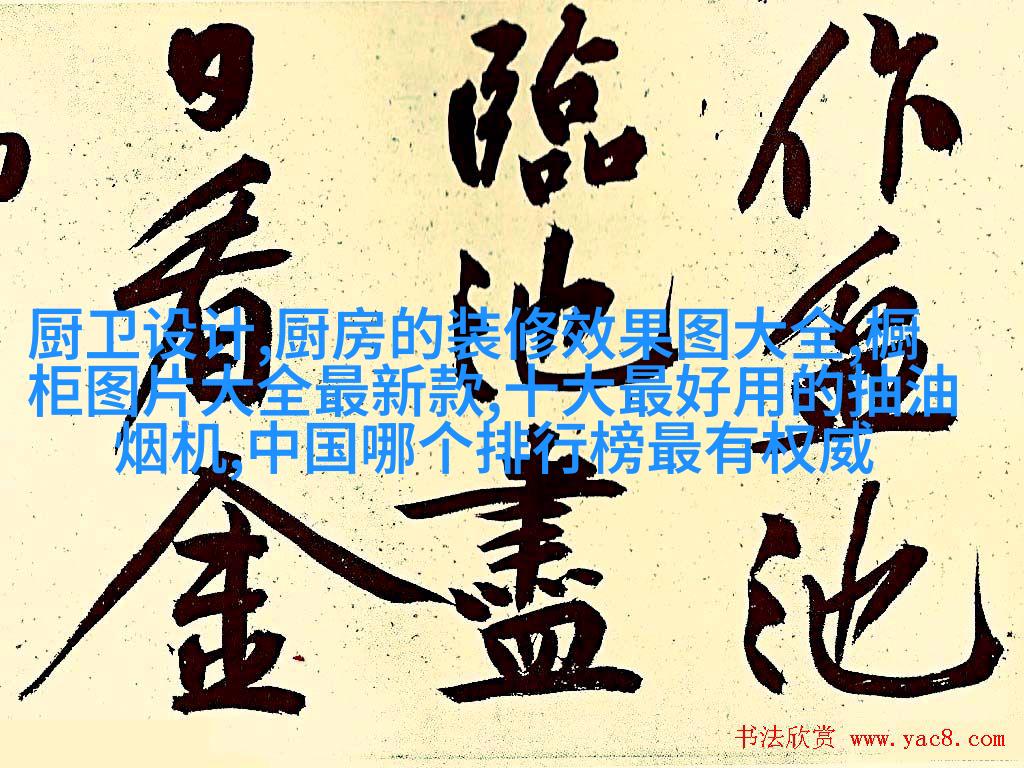 作池
臨池盡
日看金
厨卫设计,厨房的装修效果图大全,橱
柜图片大全最新款,十大最好用的抽油
烟机,中国哪个排行榜最有权威
书法欣赏 www.yac8.com